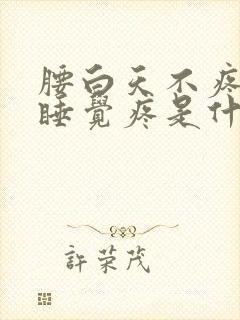 腰白天不疼
睡覺疼是什
許荣茂